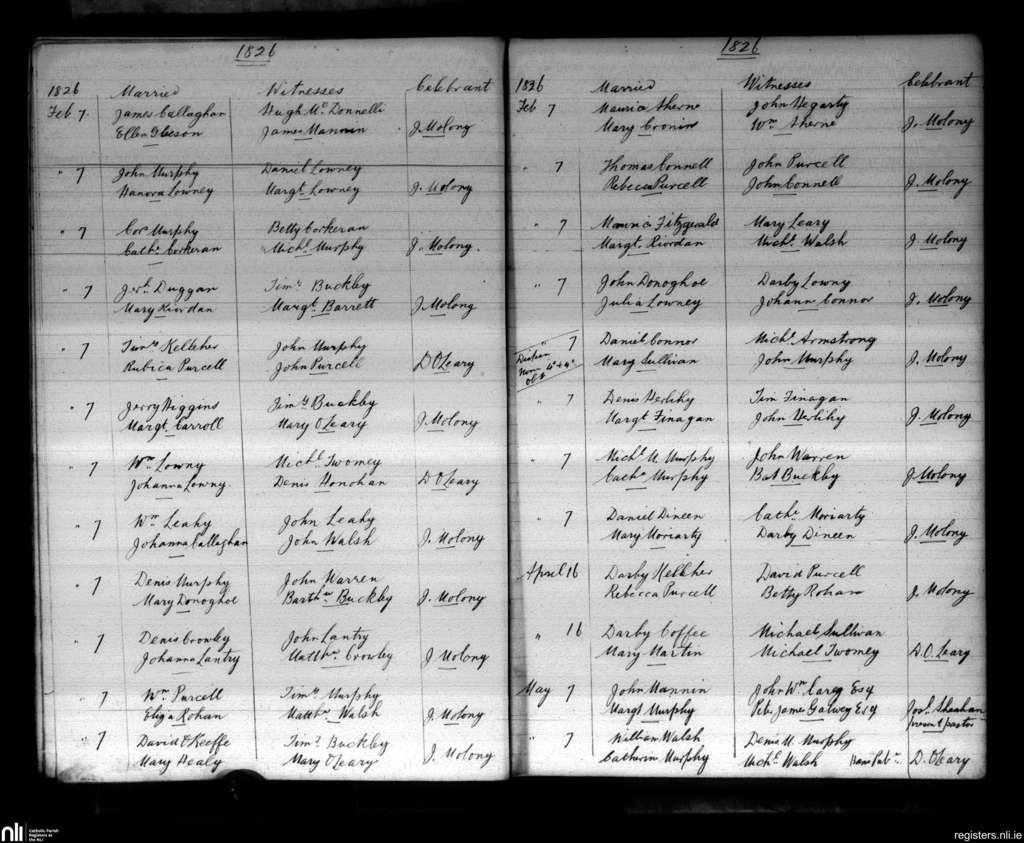 1826
1826 Married Witnesses Celebrant
Feb 7. James Callaghan Hugh Mc Donnell
Ellen Gleeson James J. Molony
" 7 John Murphy Daniel Lowney
Hanora Lowney Margt Lowney J. Molony
" 7 Cors Murphy Betty Corkeran
Cathe Corkeran Michl Murphy J. Molony.
" 7 Jerh Duggan Timy Buckley
Mary Riordan Margt Barrett J. Molony
" 7 Timy Kelleher John Murphy
Rubica Purcell John Purcell D O'Leary
" 7 Jerry Higgins Timy Buckley
Margt Carroll Mary O'Leary J. Molony
" 7 Wm Lowny Michl Twomey
Johanna Lowny. Denis Honohan D O'Leary
" 7 Wm Leahy John Leahy
Johanna Callaghan John Walsh J. Molony
" 7 Denis Murphy John Warren
Mary Donoghoe Barthw Buckley J. Molony
" 7 Denis Crowley John Lantry
Johanna Lantry Matthw Crowley J Molony
" 7 Wm Purcell Timy Murphy
Eliza Rohan Matthw Walsh J. Molony
" 7 David O'Keeffe Timy Buckley
Mary Healy Mary O'Leary J. Molony
1826
1826 Married Witnesses Celebrant
Feb 7 Maurice Aherne John Hegarty
Mary Cronin Wm Aherne J. Molony
" 7 Thomas Connell John Purcell
Rebecca Purcell John Connell J. Molony
" 7 Maurice Fitzgerald Mary Leary
Margt Riordan Michl Walsh J. Molony
" 7 John Donoghoe Darby Lowny
Julia Lowney Johanna Connor J. Molony
" 7 Daniel Connor Michl Armstrong
Dispen Mary Sullivan John Murphy J. Molony
" 7 Denis Herlihy Tim Finagan
Margt Finagan John Herlihy J. Molony
" 7 Michl M. Murphy John Warren
Cathe Murphy Bat Buckley J. Molony
" 7 Daniel Dineen Cathe Moriarty
Mary Moriarty Darby Dineen J. Molony
April 16 Darby Kelleher David Purcell
Rebecca Purcell Betty Rohan J. Molony
" 16 Darby Coffee Michael Sullivan
Mary Martin Michael Twomey D. O'Leary
May 7 John Mannin John Wm Carey Esq
Margt Murphy James Galwey Esq Josh Sheahan
present pastor
" 7 William Walsh Denis M. Murphy
Catherin Murphy Michl Walsh D. O'Leary
nli
Catholic Parish
Registers at
the NLI
registers.nli.ie